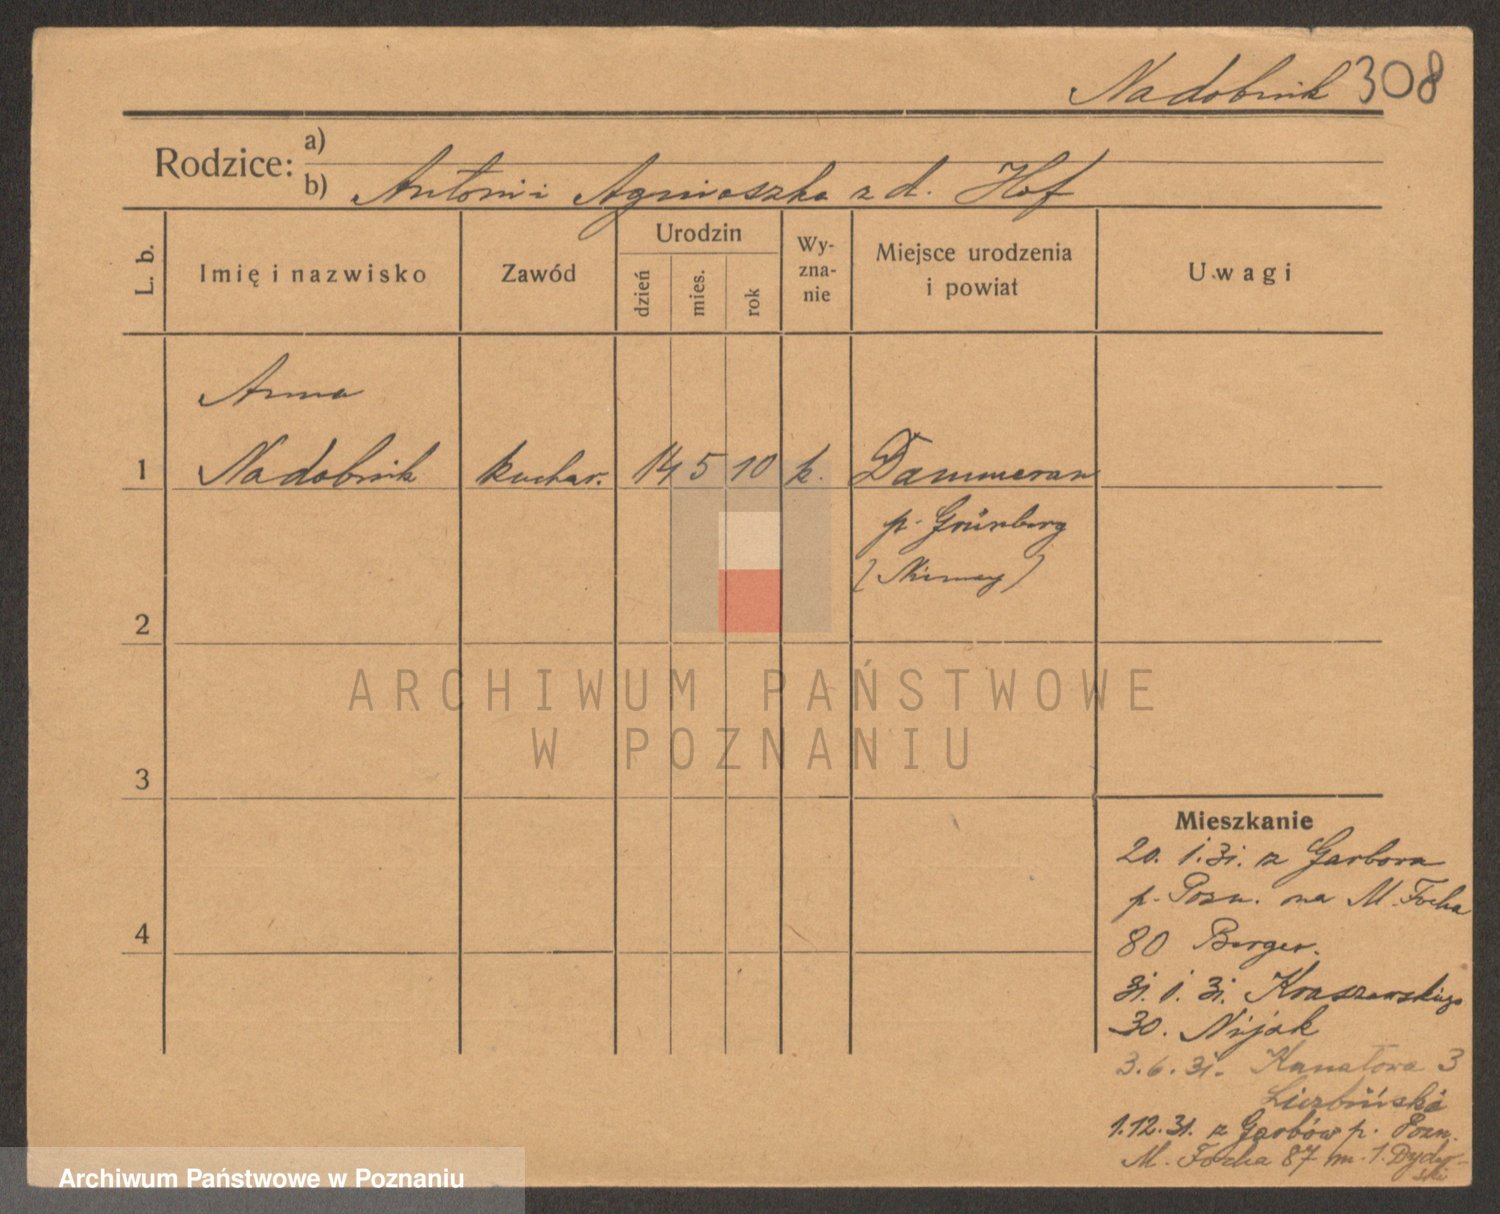 Nadobnik 308
Rodzice:
a)
b) Antoni i Agnieszka z d. Hof
L. b.
Imię i nazwisko
Zawód
Urodzin
dzień
mies.
rok
Wy-
zna-
nie
Miejsce urodzenia
i powiat
Uwagi
Anna
1 Nadobnik kuchar. 14 5 10 k. Dammerau
p. Grünberg
(Niemcy)
2
3
4
Mieszkanie
20. 1. 31. z Garbora
p. Pozn. na M. Focha
80 Berger.
31. 1. 31. Kraszewskiego
30. Nijak
3. 6. 31. Kanałowa 3
Liczbińska
1.12.31. z Garbów p. Pozn.
M. Focha 87 m. 1. Dydyń-
ski
ARCHIWUM PAŃSTWOWE
W POZNANIU
Archiwum Państwowe w Poznaniu